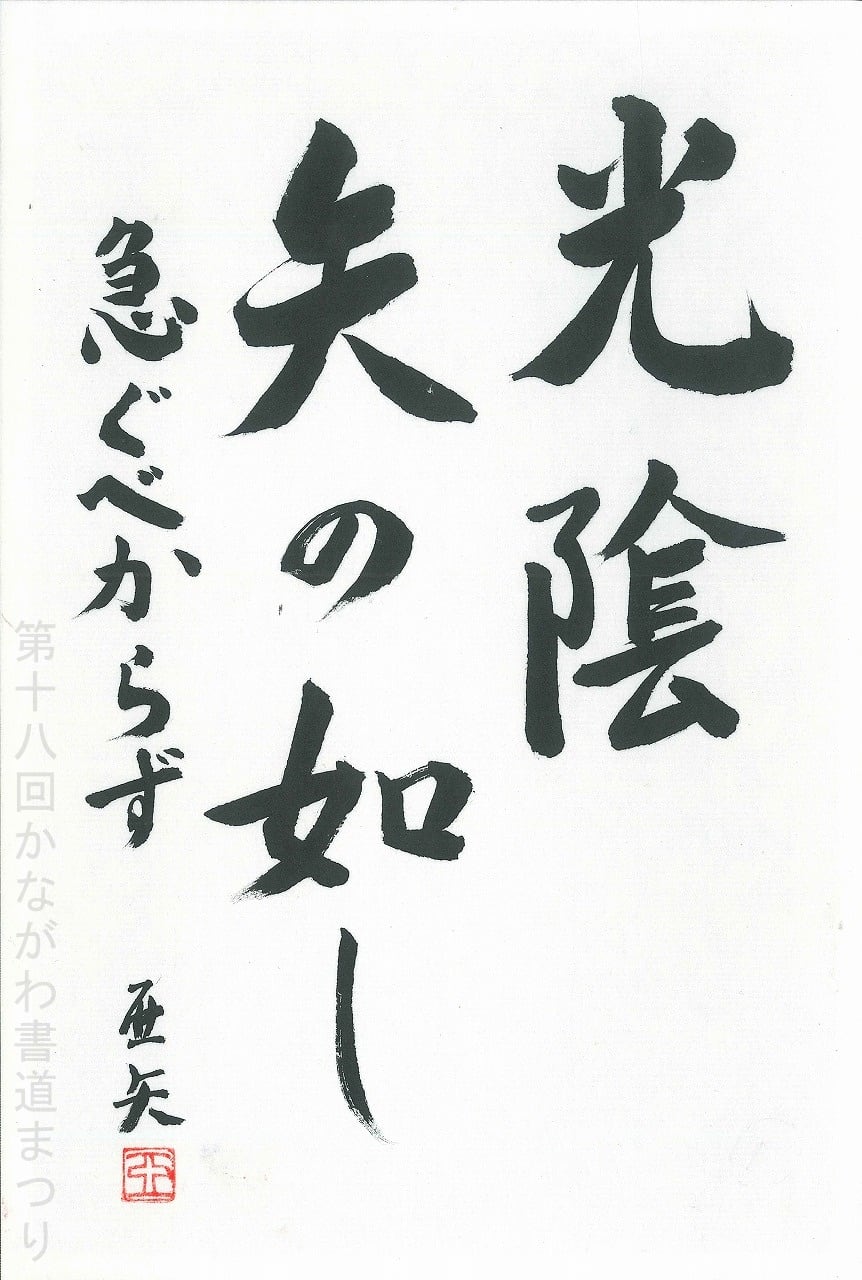 光陰
矢の如し
急ぐべからず
亜矢
亜
第十八回かながわ書道まつり